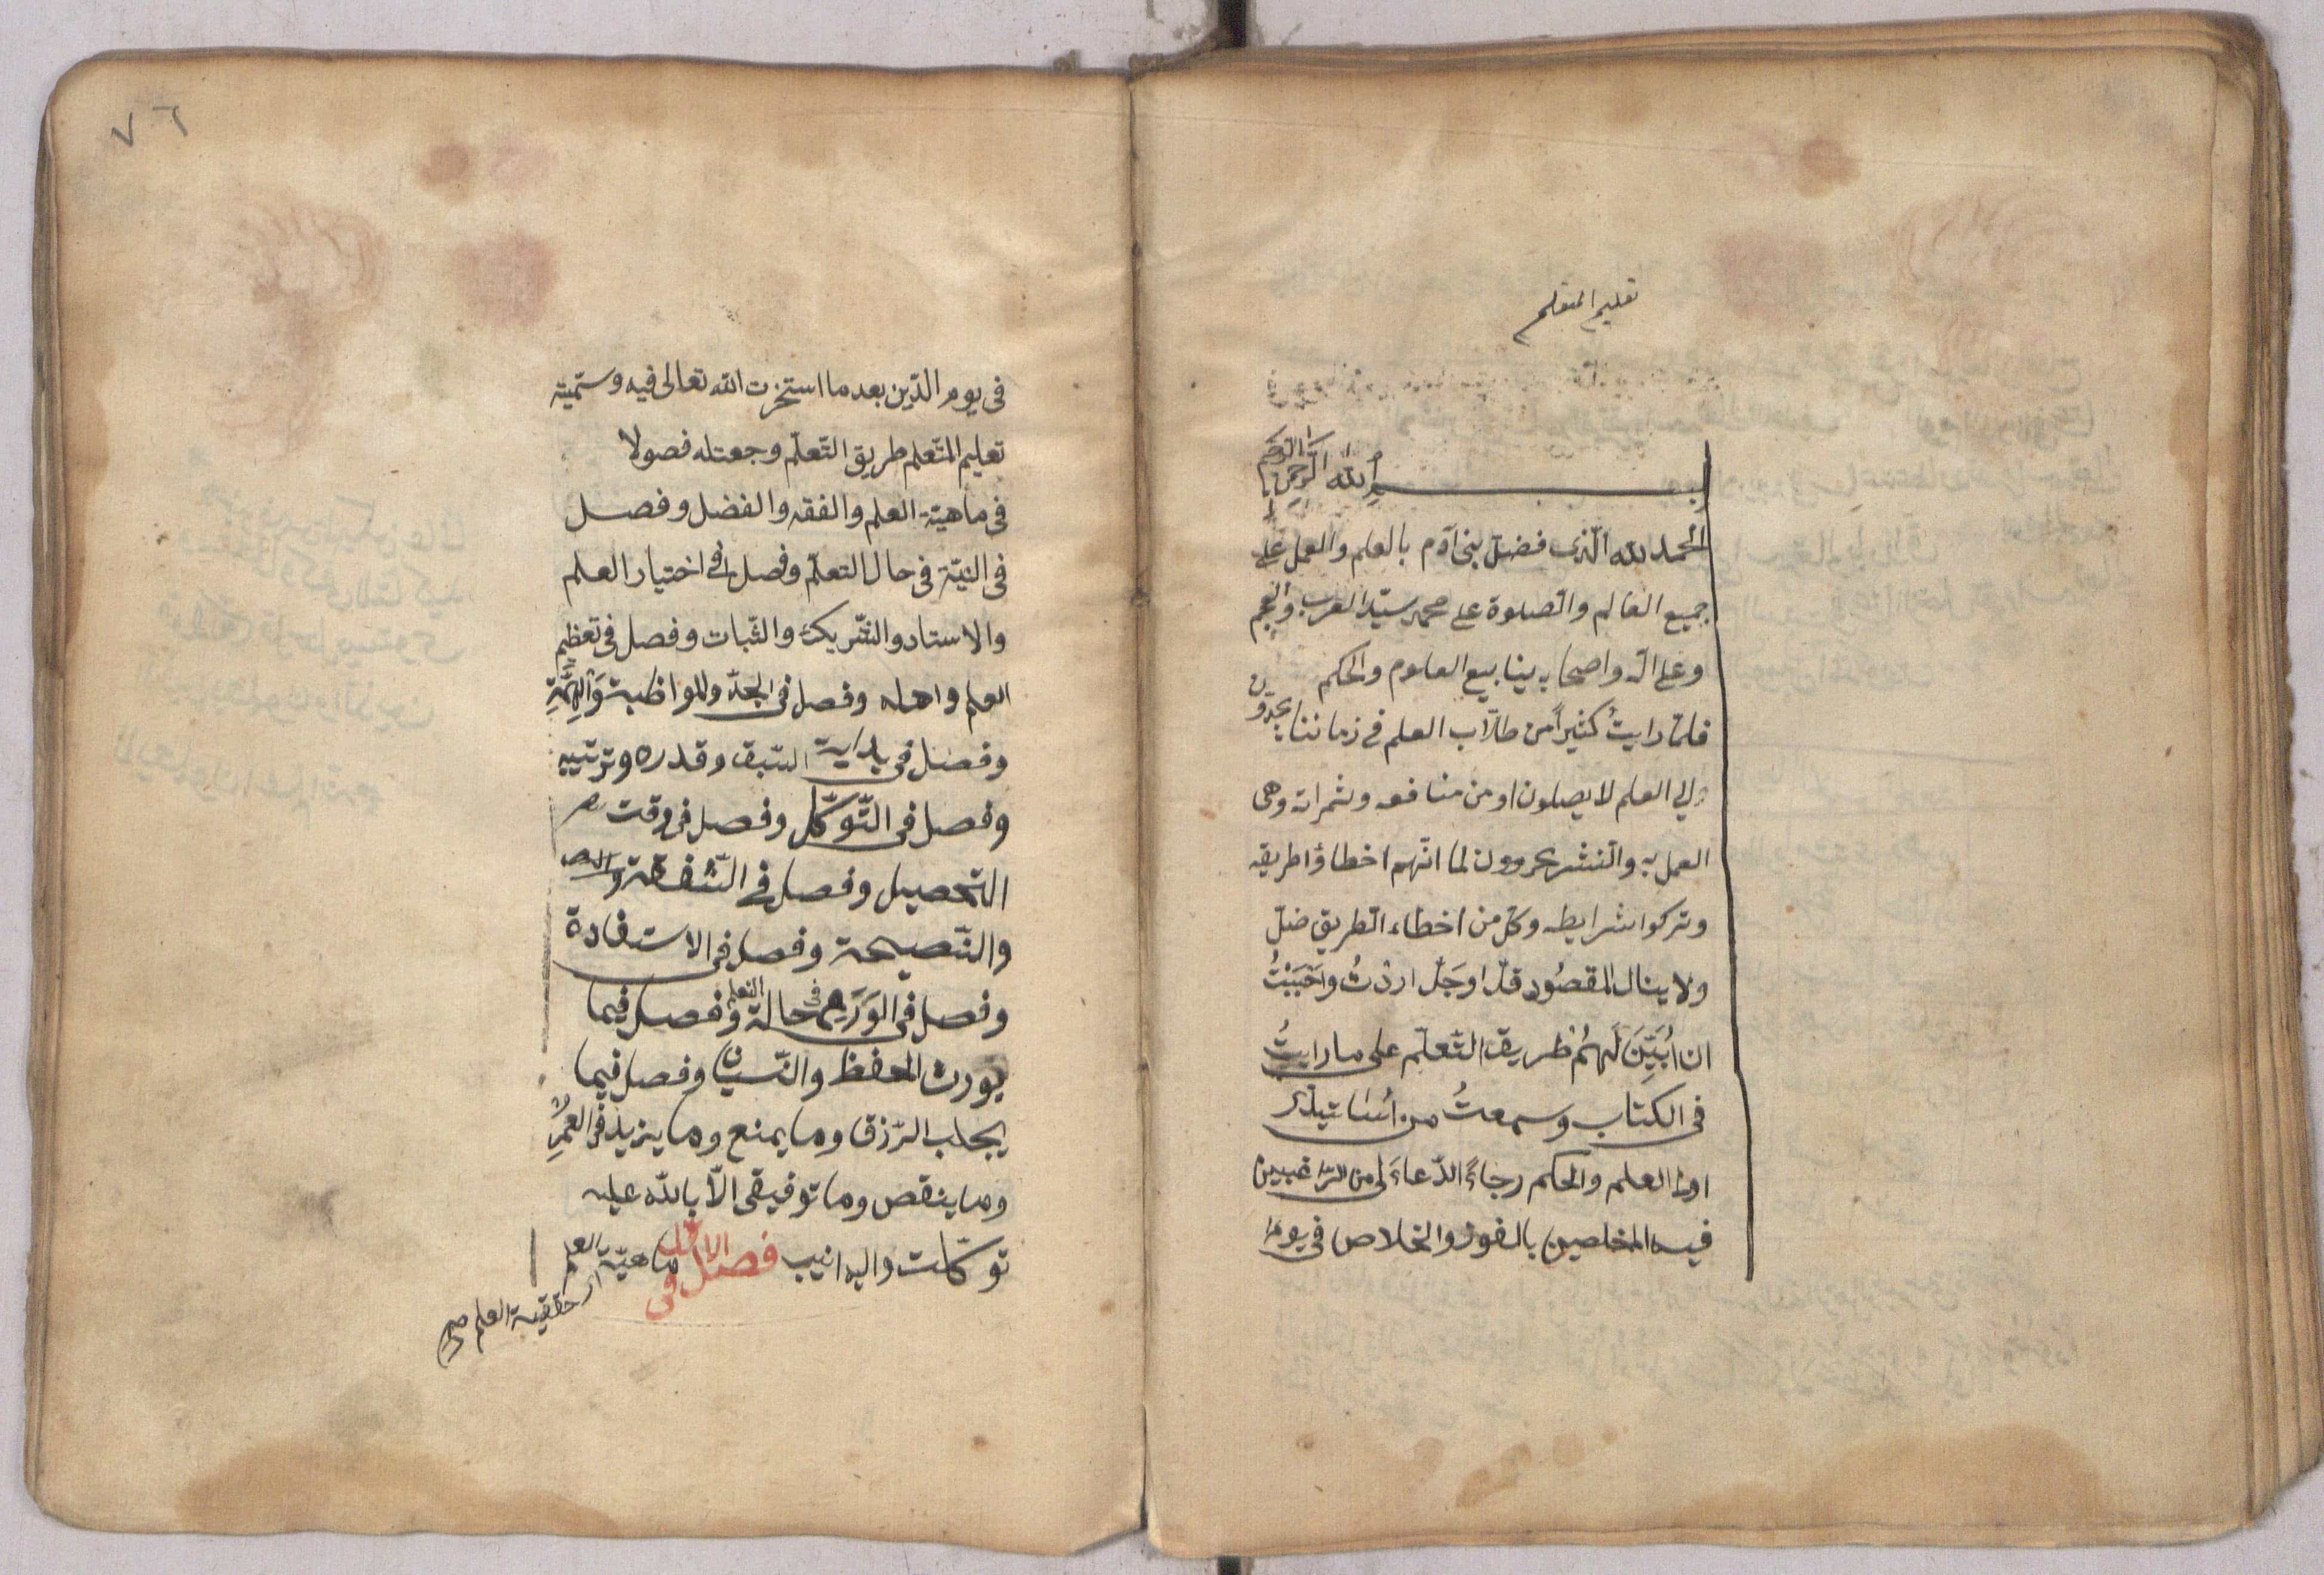 تعليم المتعلم
بسم الله الرحمن الرحيم
الحمد لله الّذى فضّل بنى آدم بالعلم والعمل على
جميع العالم والصلوة على محمد سيّد العرب والعجم
وعلى اله واصحابه ينابيع العلوم والحكم
فلمّا رايتُ كثيراً من طلّاب العلم فى زماننا يجدّون
الى العلم لا يصلون او من منافعه وثمراته وهى
العمل به والنشر يحرمون لما انّهم اخطاؤا طريقه
وتركوا شرايطه وكل من اخطاء الطريق ضلّ
ولا ينال المقصُود قلّ اوجَلّ اردْتُ واحْبَبْتُ
ان اُبَيِّنَ لَهُم طريق التّعلّم على ما رايتُ
فى الكتاب وسمعتُ من اساتيذى
اولى العلم والحكم رجاءً الدّعاءَ لى من الرّاغبين
فيه المخلصين بالفوز والخلاص فى يوم
٧٦
فى يوم الدّين بعد ما استخرت الله تعالى فيه وسمّيته
تعليم المتّعلم طريق التّعلّم وجعلته فصولا
فى ماهيّة العلم والفقه والفضل وفصل
فى النيّة فى حال التعلّم وفصل فى اختيار العلم
والاستاد والشّريك والثّبات وفصل فى تعظيم
العلم واهله وفصل فى الجدّ والمواظبة وَالهِمَّةِ
وفصل فى بداية السّبق وقدره وترتيبه
وفصل فى التّوكّل وفصل فى وقت
التحصيل وفصل فى الشّفقة
والنّصيحة وفصل فى الاستفادة
وفصل فى الوَرَع فى حالة التعلم وفصل فيما
يورث الحفظ والنّسيان وفصل فيما
يجلب الرّزق وما يمنع وما يزيد فى العمُرِ
وما ينقص وما توفيقى الّا بالله عليه
توكّلت واليه انيب فصل الاول فى ماهيّة العلم
اى حقيقة العلم صح